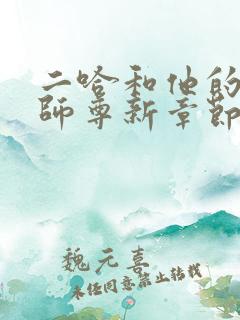 二哈和他的
師尊新章節
魏元喜
未经同意禁止转载